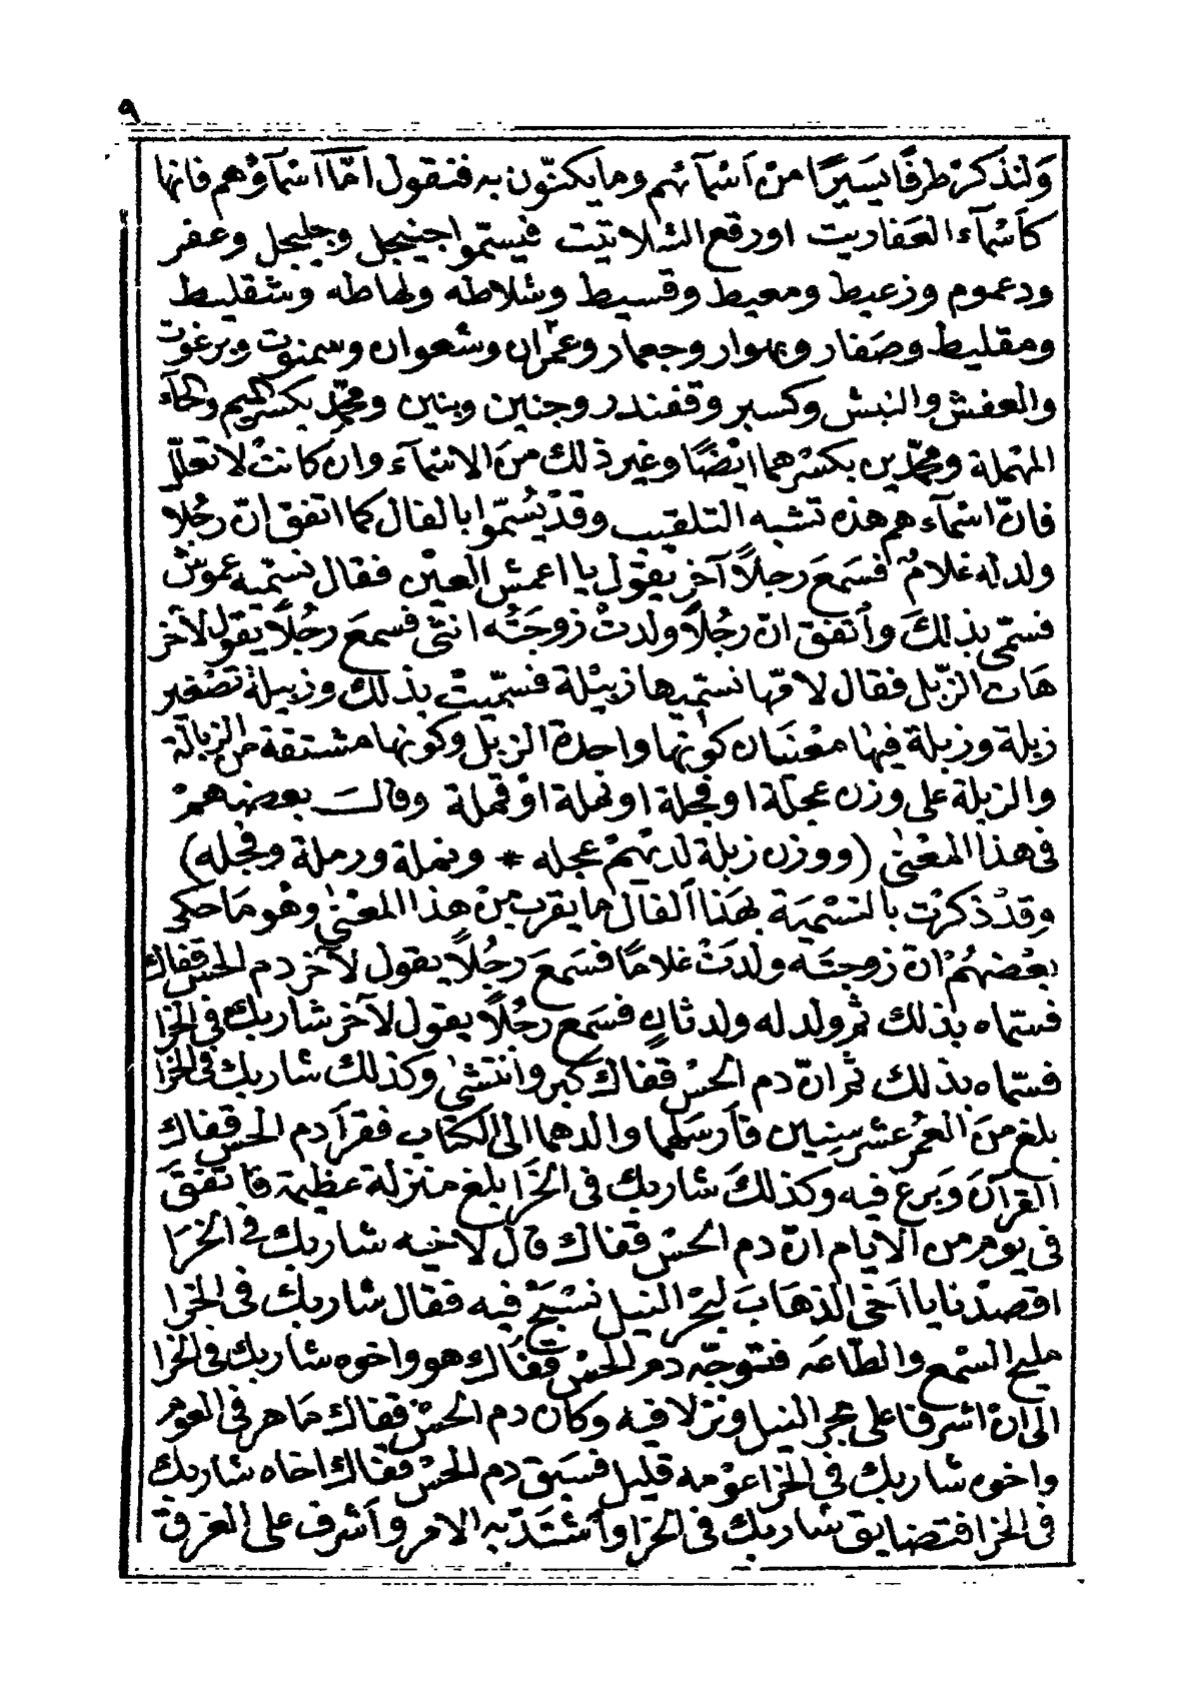 ٩
وَلنذكرْ طرفًا يسَيرًا منْ اَسْمآئهم وما يكنّون به فنقول امّا اَسْمآؤهم فانها
كاَسْمآء العفاريت اورقع الشلاتيت فيسمّوا جنيجل وجليجل وعفر
ودعموم وزعيط ومعيط وقسيط وشلاطه ولهاطه وشقليط
ومقليط وصَفار وبهوار وجعمار وعمّران وشعوان وسمنوت وبرغوت
والعفش والنبش وكسبر وقفندر وجنين وبنين ومحمّد بكسر الميم والحآء
المهملة ومحمّدين بكسْرهما ايْضًا وغير ذلك منَ الاسْمآء وان كانتْ لا تعلّل
فانّ اسْمآء هم هذه تشبه التلقيب وقدْ يُسَمّوا بالفال كما اتفق انّ رجُلا
ولد له غلامٌ فسَمعَ رجلاً آخر يقول يا اعمش العينْ فقال نسمّيه عموش
فسمّى بذلكَ وأتفق انّ رجُلاً ولدتْ زوجَتُه انثى فسمعَ رجُلاً يقول لآخر
هَات الزّبل فقال لامّها نسمّيها زبيْلة فسمّيتْ بذلك وزبيلة تصْغير
زبلة وزبلة فيها معْنيَان كونْها واحدة الزبل وكونْها مشتقة من الزبالة
والزبلة على وزن عجْلة اوفجلة اونملة اوْ قملة وقالَ بعضهمْ
فى هذا المعْنىٰ (ووزن زبلة لديْهمْ عجله * ونملة ورملة وفجله)
وقدْ ذكرْت بالتسْميَة بهَذا اَلفال ما يقرب منْ هذا المعْنىٰ وهو مَا حكى
بعْضهُمْ ان زوجتَه ولدَتْ غلامًا فسَمعَ رجُلاً يقول لآخر دم الحسْ قفاك
فسمّاه بذلك ثم ولد له ولد ثانٍ فسَمع رجُلاً يقول لآخر شاربك فى الخرا
فسمّاه بذلك ثم انّ دم الحسْ قفاك كبر وانْتشى وكذلك شاربك فى الخرا
بلغ منَ العُمر عشر سِنِين فأرسَلهما والدهما الى الكتاب فقرَأ دم الحسْ قفاك
القرآنَ وبَرع فيه وكذلكَ شاربك فى الخرَا بلغ منزلة عظيمة فاتفقَ
فى يوْم من الايام انّ دم الحسْ قفاك قال لاخيه شاربك فى الخرَا
اقصدْنا يا اَخى الذهَابَ لبحْر النيل نسْبَحْ فيه فقال شاربك فى الخرا
مليح السّمع والطّاعَه فتوجّه دم الحسْ قفاك هو واخوه شاربك فى الخرا
الى انْ اشرفا على بحر النيل ونزلا فيه وكان دم الحسْ قفاك مَاهر فى العوم
واخوه شاربك فى الخرا عوْمه قليل فسَبق دم الحسْ قفاك اخاه شاربك
فى الخرا فتضايق شاربك فى الخرا وأشتَدّ به الامر وأشرف على الغرق